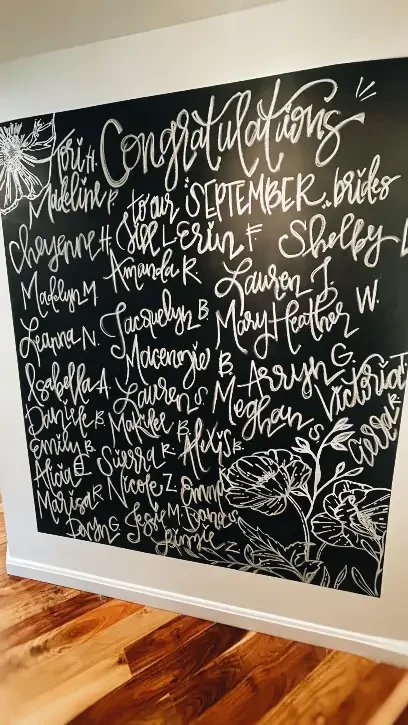 Tori H. Congratulations
Madeline P. to our SEPTEMBER brides
Cheyenne H. Jill L. Erin F. Shelby
Madlyn M. Amanda R. Lauren J.
Leanna N. Jacquelyn B. Mary Heather W.
Mackenzie B. Arryn G.
Isabella A. Lauren S. Meghan S. Victoria T.
Danile B. Makilee B. Alexis B. Cassa R.
Emily B. Sierra R.
Alicia E. Nicole Z. Emma
Marisa R. Jessie M. Dana S.
Daryn G. Jaimie Z.